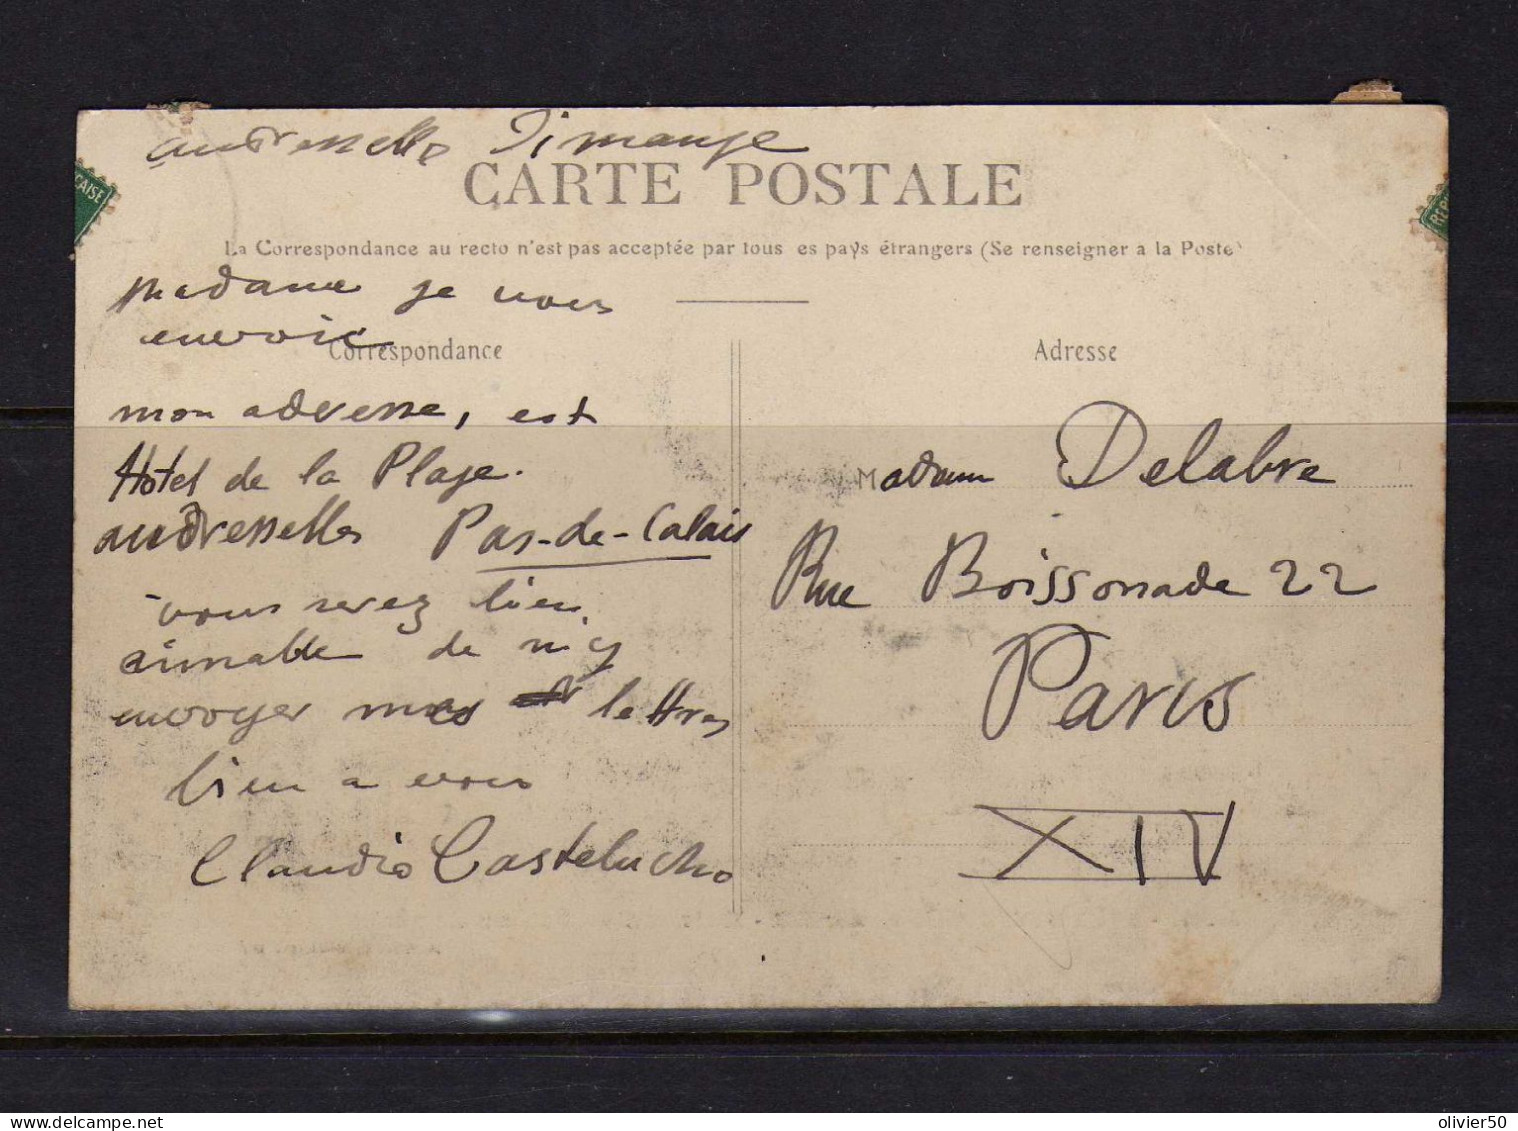 audresselles Dimange
CARTE POSTALE
La Correspondance au recto n'est pas acceptée par tous es pays étrangers (Se renseigner a la Poste)
madame je vous
envoie
Correspondance
mon adresse, est
Hotel de la Plage.
audresselles Pas-de-Calais
vous serez bien
aimable de m'y
envoyer mes lettres
bien a vous
Claudio Castelucho
Adresse
Madam Delabre
Rue Boissonade 22
Paris
XIV
CAISE
REPU
olivier50